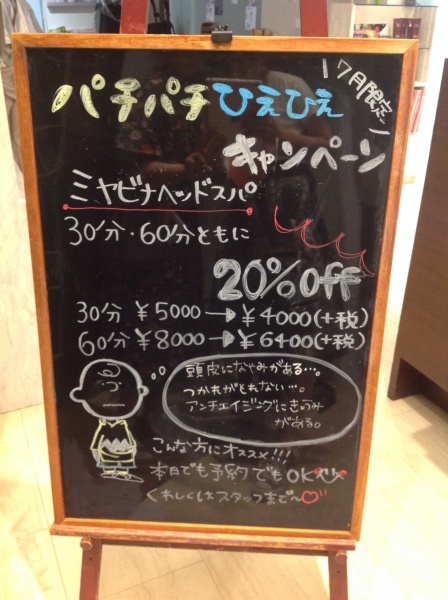 7月限定
パチパチひえひえ
キャンペーン
ミヤビナヘッドスパ
30分・60分ともに
20%off
30分 ¥5000→¥4000(+税)
60分 ¥8000→¥6400(+税)
頭皮になやみがある…。
つかれがとれない…。
アンチエイジングにきょうみ
がある。
こんな方にオススメ!!!
本日でも予約でもOK
くわしくはスタッフまで〜♡